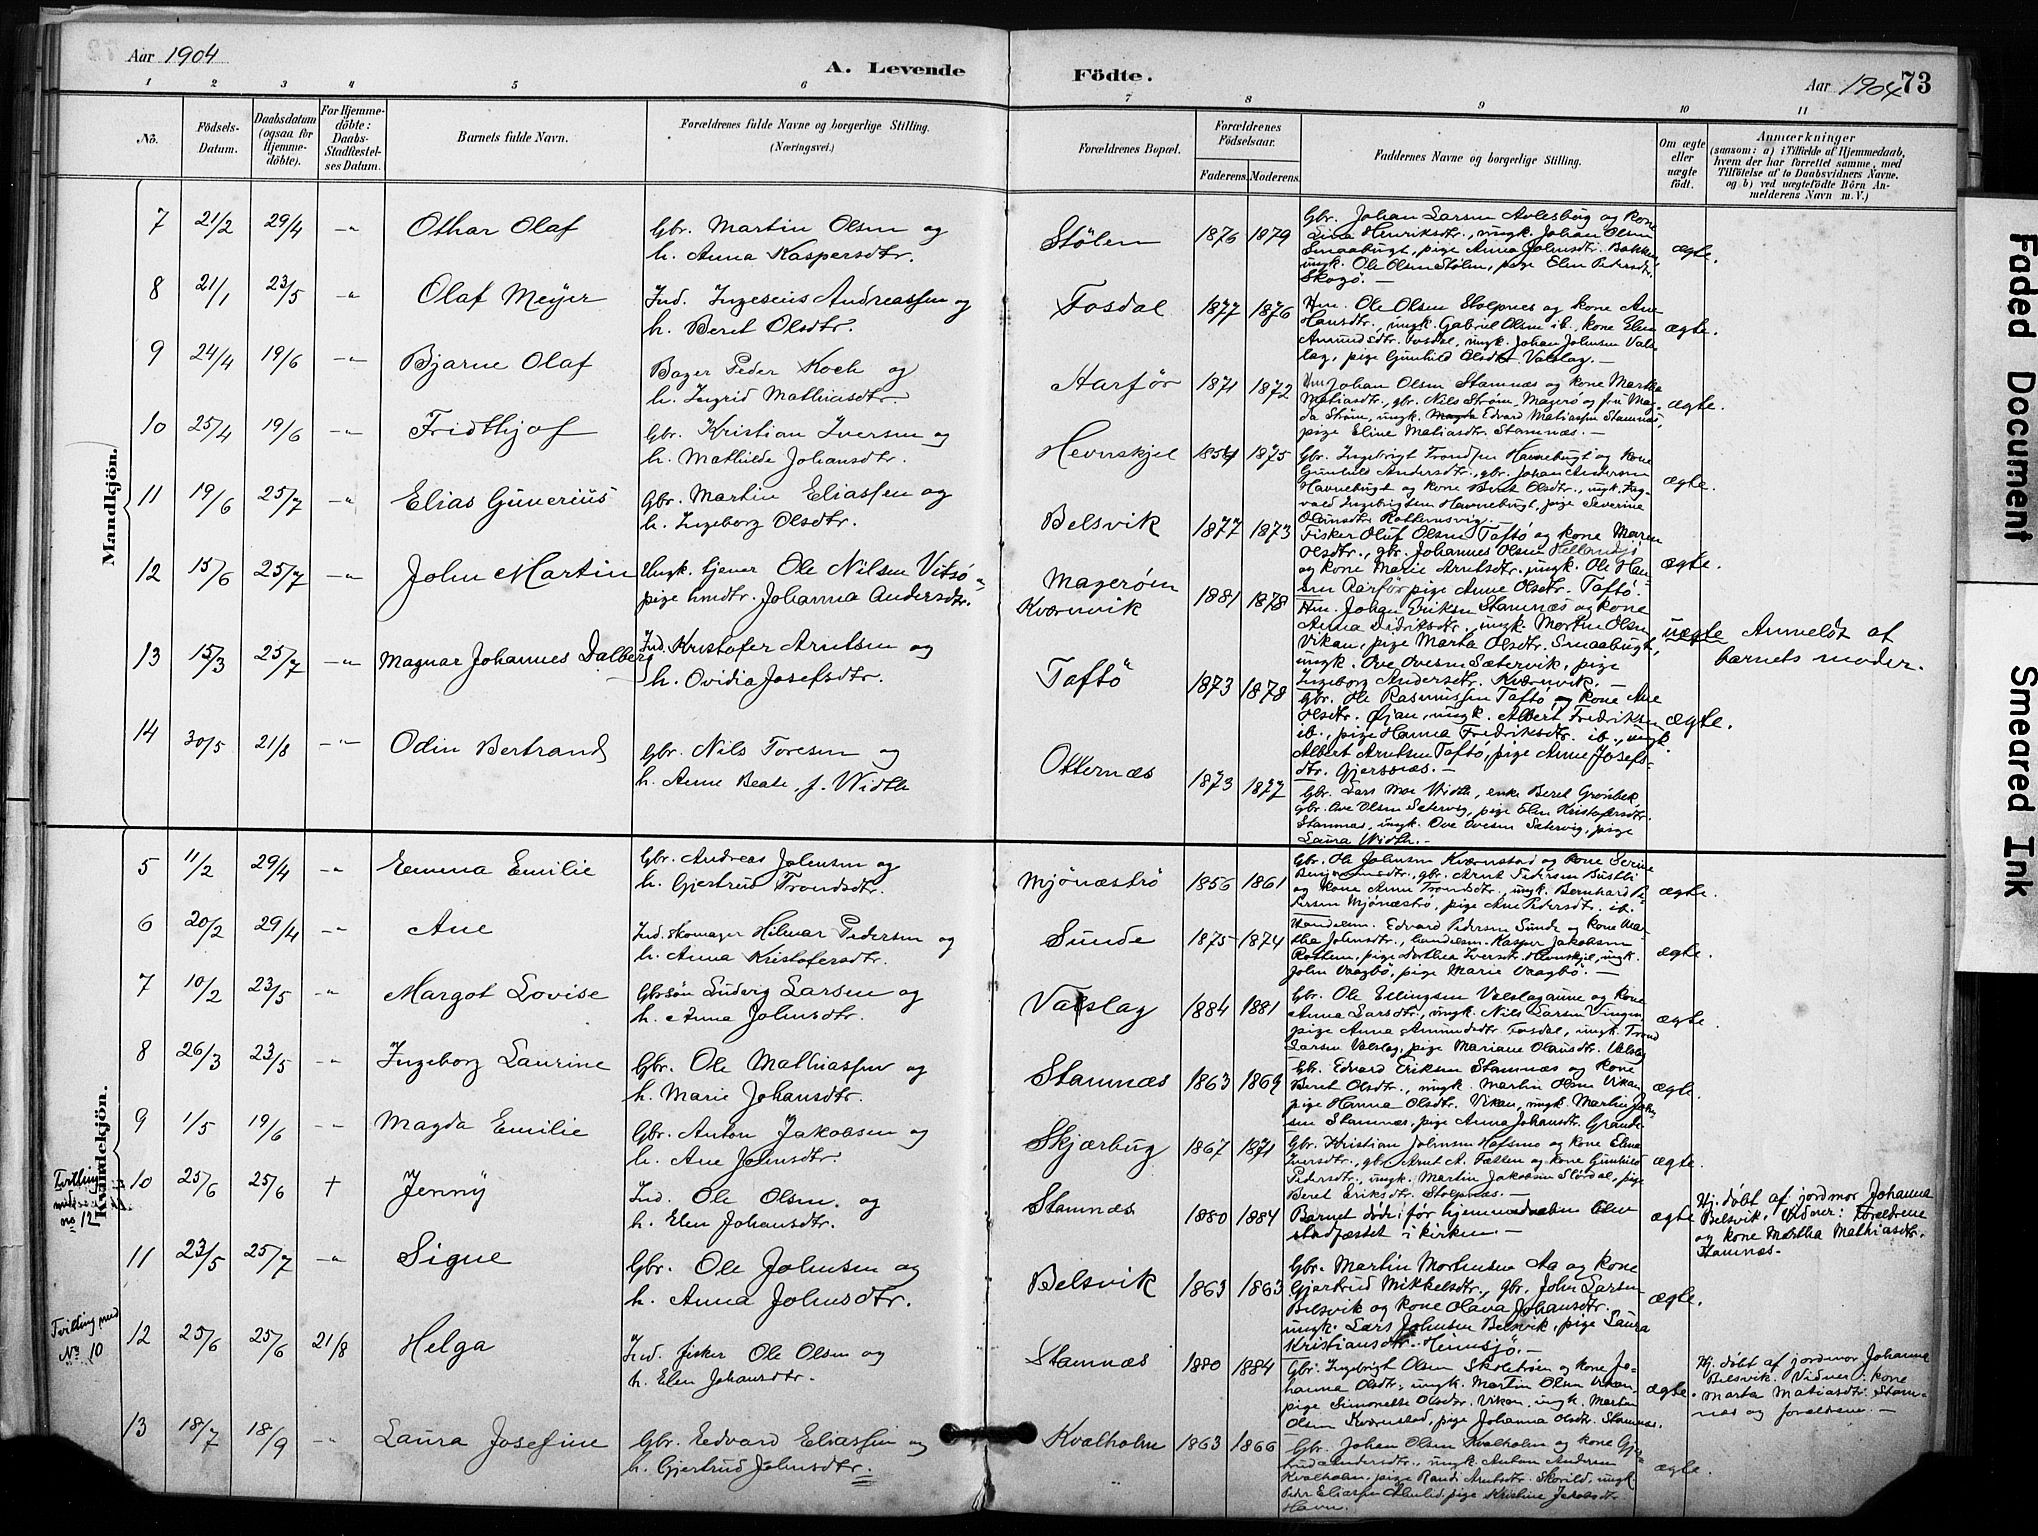 Aar 1904
A. Levende
Födte.
Aar 1904 73
1 2 3 4 5 6 7 8 9 10 11
No.
Födsels-
Datum.
Daabsdatum
(ogsaa for
Hjemme-
döbte).
For Hjemme-
döbte:
Daabs-
Stadfæstel-
ses Datum.
Barnets fulde Navn.
Forældrenes fulde Navne og borgerlige Stilling.
(Næringsvei.)
Forældrenes Bopæl.
Forældrenes
Födselsaar.
Faderens. Moderens.
Faddernes Navne og borgerlige Stilling.
Om ægte
eller
uægte
födt.
Anmærkninger
(saasom: a) i Tilfælde af Hjemmedaab,
hvem der har forrettet samme, med
Tilföielse af to Daabsvidners Navne.
og b) ved uægtefödte Börn An-
melderens Navn m. V.)
Mandkjön.
7 21/2 29/4 -"- Othar Olaf Gbr. Martin Olsen og
h. Anna Kaspersdtr.
Stölen 1876 1879
Gbr. Johan Larsen Avlesbug og kone
Lina Henriksdtr., ungk. Johan Olsen
Smaabugt, pige Anna Johnsdtr. Bakken,
ungk. Ole Olsen Stölen, pige Elen Pedersdtr.
Skogö. -
ægte.
8 21/1 23/5 -"- Olaf Meyer Ind. Ingeseus Andreassen og
h. Beret Olsdtr.
Fosdal 1877 1876
Hm. Ole Olsen Stolpnes og kone Ane
Hansdtr., ungk. Gabriel Olsen ib., kone Elen
Amundsdtr. Fosdal, ungk. Johan Johnsen Vals-
lag, pige Gunhild Olsdtr Valslag. -
ægte.
9 24/4 19/6 -"- Bjarne Olaf Bager Peder Koch og
h. Ingrid Mathiasdtr.
Aarför 1871 1872
Hm Johan Olsen Stamnæs og kone Martha
Matiasdtr., gbr. Nils Ström, Magerö og fru Mag-
da Ström, ungk. Edvard Matiassen Stamnæs,
pige Eline Matiasdtr. Stamnæs. -
ægte.
10 25/4 19/6 -"- Fridthjof Gbr. Kristian Iversen og
h. Mathilde Johansdtr.
Hevnskjel 1854 1875
Gbr. Ingebrigt Trondsen Havnebugt og kone
Gunhild Andersdtr., gbr. Johan Andersen
Havnebugt og kone Beret Olsdtr., ungk. Ing-
vald Ingebrigtsen Havnebugt, pige Severine
Olausdtr. Rottemsvig. -
ægte.
11 19/6 25/7 -"- Elias Gunerius Gbr. Martin Eliassen og
h. Ingeborg Olsdtr.
Belsvik 1877 1873
Fisker Oluf Olsen Taftö og kone Maren
Olsdtr., gbr. Johannes Olsen Hellandsjö
og kone Marie Arntsdtr. ungk. Ole Han-
sen Aarför pige Anne Olsdtr. Taftö.
ægte.
12 15/6 25/7 -"- John Martin Ungk. tjener Ole Nilsen Vitsö "
pige hmdtr. Johanna Andersdtr.
Mageröen
Kværnvik 1881 1878
Hm. Johan Eriksen Stamnæs og kone
Anna Didriksdtr., ungk. Morten Olsen
Vikan, pige Marta Olsdtr. Smaabugt,
ungk. Ove Ovesen Sætervik, pige
Ingeborg Andersdtr. Kværnvik. -
uægte Anmeldt af
barnets moder.
13 15/3 25/7 -"- Magnar Johannes Dalberg Ind. Kristofer Arntsen og
h. Ovidia Josefsdtr.
Taftö 1873 1878
Gbr. Ole Rasmussen Taftö og kone Ane
Olsdtr. Öyan, ungk. Albert Fredriksen
ib., pige Hanna Fredriksdtr. ib., ungk.
Albert Arntsen Taftö, pige Anne Josefs-
dtr. Gjersnæs. -
ægte.
14 30/5 21/8 -"- Odin Bertrand Gbr. Nils Toresen og
h. Anne Beate, f. Width
Otternæs 1873 1877
Gbr. Lars Moe Width, enke Beret Grönbek,
Gbr. Ove Olsen Setervig, pige Elen Kristofersdtr.
Stamnæs, ungk. Ove Ovesen Setervig, pige
Laura Width. -
Kvindekjön.
5 11/2 29/4 -"- Emma Emilie Gbr. Andreas Johnsen og
h. Gjertrud Trondsdtr.
Mjönæströ 1856 1861
Gbr. Ole Johnsen Kværnstad og kone Serine
Benjaminsdtr., gbr. Arnt Pedersen Bustli
og kone Anne Trondsdtr., ungk. Bernhard Pe-
dersen Mjönæströ, pige Ane Pedersdtr. ib.
ægte.
6 20/2 29/4 -"- Ane Ind. skomager Hilmar Pedersen og
h. Anna Kristofersdtr.
Sunde 1875 1874
Handelsm. Edvard Pedersen Sunde og kone Mar-
tha Johnsdtr., handelsm. Kasper Jakobsen
Rottem, pige Dorthea Iversdtr. Hevnskjel, ungk.
John Vaagbö, pige Marie Vaagbö. -
ægte.
7 10/2 23/5 -"- Margot Lovise Gbrsön Ludvig Larsen og
h. Anna Johnsdtr.
Valslag 1884 1881
Gbr. Ole Ellingsen Valslagaune og kone
Anna Larsdtr., ungk. Nils Larsen Vingen,
pige Anna Amundsdtr Fosdal, ungk. Trond
Larsen Valslag, pige Mariane Olausdtr. Valslag
ægte.
8 26/3 23/5 -"- Ingeborg Laurine Gbr. Ole Mathiassen og
h. Marie Johansdtr.
Stamnæs 1863 1869
Gbr. Edvard Eriksen Stamnæs og kone
Beret Olsdtr., ungk. Martin Olsen Vikan,
pige Hanna Olsdtr. Vikan, ungk. Martin Johan-
sen Stamnæs, pige Anna Johansdtr. Grande
ægte.
9 1/5 19/6 -"- Magda Emilie Gbr. Anton Jakobsen og
h. Ane Johnsdtr.
Skjærbug 1867 1871
Gbr. Kristian Johnsen Hafsmo og kone Elena
Iversdtr., gbr. Arnt A. Fætten og kone Gunhild
Pedersdtr., ungk. Martin Jakobsen Slördal, pige
Beret Eriksdtr. Stolpnæs. -
ægte.
Tvilling
med
no 12
10 25/6 25/6 + Jenny Ind. Ole Olsen og
h. Elen Johansdtr.
Stamnæs 1880 1884
Barnet döde för hjemmedaaben blev
stadfæstet i kirken. -
ægte
Hj. döbt af jordmor Johanna
Belsvik. Vidner: Forældrene
og kone Martha Mathiasdtr.
Stamnæs. -
11 23/5 25/7 -"- Signe Gbr. Ole Johnsen og
h. Anna Johnsdtr.
Belsvik 1863 1863
Gbr. Martin Mortensen Aa og kone
Gjertrud Mikkelsdtr., gbr. John Larsen
Belsvik og kone Olava Johansdtr.
ungk. Lars Johnsen Belsvik, pige Laura
Kristiansdtr. Hemsjö. -
ægte.
Tvilling med
No 10
12 25/6 25/6 21/8 Helga Ind. fisker Ole Olsen og
h. Elen Johansdtr.
Stamnæs 1880 1884
Gbr. Ingebrigt Olsen Skoleströen og kone Jo-
hanna Olsdtr., ungk. Martin Olsen Vikan,
pige Simonette Olsdtr. Vikan, ungk. Martin
Olsen Kværnstad, pige Johanna Olsdtr. Stamnæs.
ægte.
Hj. döbt af jordmor Johanna
Belsvik. Vidner: kone
Marta Matiasdtr. Stam-
næs og forældrene. -
13 18/7 18/9 -"- Laura Josefine Gbr. Edvard Eliassen og
h. Gjertrud Johnsdtr.
Kvalholm 1863 1866
Gbr. Johan Olsen Kvalholm og kone Gje-
trud Andersdtr., ungk. Anton Andersen
Kvalholm, pige Randi Arntsdtr. Skorild, ungk.
Peder Eliassen Almlid, pige Kristine Jakobsdtr.
Havn.
ægte.
Faded Document
Smeared Ink